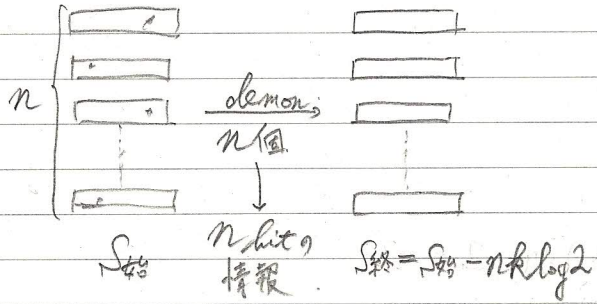 n
demon;
n個
n bitの
情報
S始
S終 = S始 - nk log2